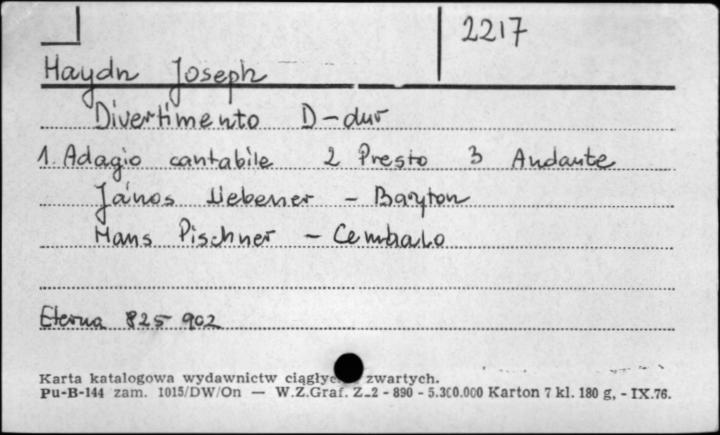 2217
Haydn Joseph
Divertimento D-dur
1. Adagio cantabile 2 Presto 3 Andante
János Liebener - Baryton
Hans Pischner - Cembalo
Eterna 825 902
Karta katalogowa wydawnictw zwartych.
Pu-B-144 zam. 1015/DW/On — W.Z.Graf. Z.2 - 890 - 5.300.000 Karton 7 kl. 180 g, - IX.76.